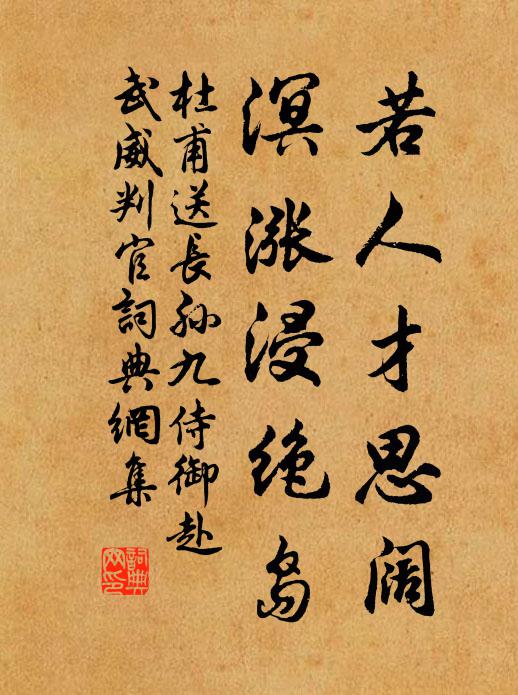 若人才思阔
溟涨浸绝岛
杜甫送長孙九侍御赴
武威判官詞典網集
詞典
网印